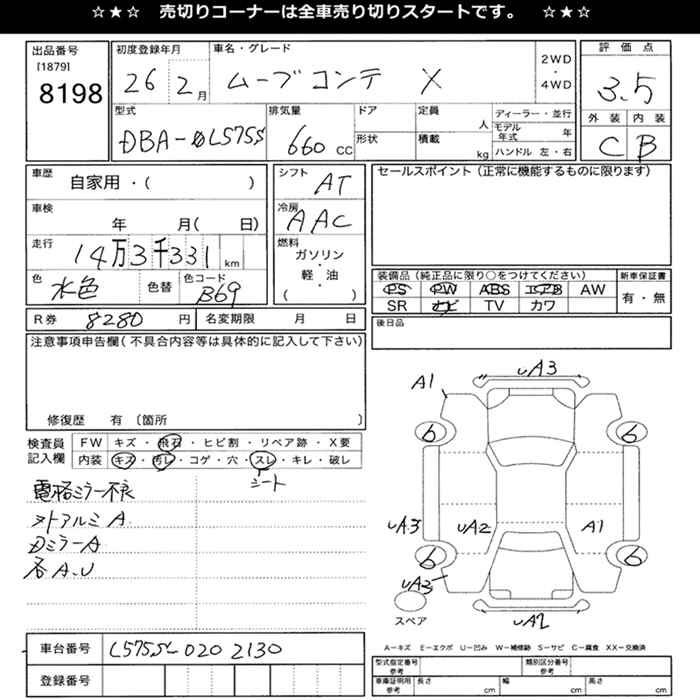 ☆★☆ 売切りコーナーは全車売り切りスタートです。 ☆★☆
出品番号
[1879]
8198
初度登録年月
26 2月
車名・グレード
ムーブコンテ X
2WD
・
4WD
評価点
3.5
外装 内装
C B
型式
DBA-L575S
排気量
660 CC
ドア
形状
定員
人
積載
kg
ディーラー・並行
モデル年式 年
ハンドル 左・右
車歴
自家用・( )
車検
年 月( 日)
走行
14万3千331 km
色
水色
色替
色コード
B69
シフト
AT
冷房
AAC
燃料
ガソリン
・
軽・油
( )
セールスポイント(正常に機能するものに限ります)
装備品(純正品に限り○をつけてください)
PS PW ABS エアB AW
SR ナビ TV カワ
新車保証書
有・無
R券 8280 円
名変期限 月 日
後日品
注意事項申告欄(不具合内容等は具体的に記入して下さい)
修復歴 有 〔箇所 〕
検査員
記入欄
FW キズ・飛石・ヒビ割・リペア跡・X要
内装 キズ・汚レ・コゲ・穴・スレ・キレ・破レ
シート
電格ミラー不良
アルミ A
ミラーA
各A.U
A1
uA3
6
6
uA3
uA2
A1
6
6
uA3
uA2
スペア
A-キズ E-エクボ U-凹み W-補修跡 S-サビ C-腐食 XX-交換済
車台番号
L575S-0202130
登録番号
型式指定番号
参考
類別区分番号
参考
車庫証明用
参考
長さ cm
幅 cm
高さ cm